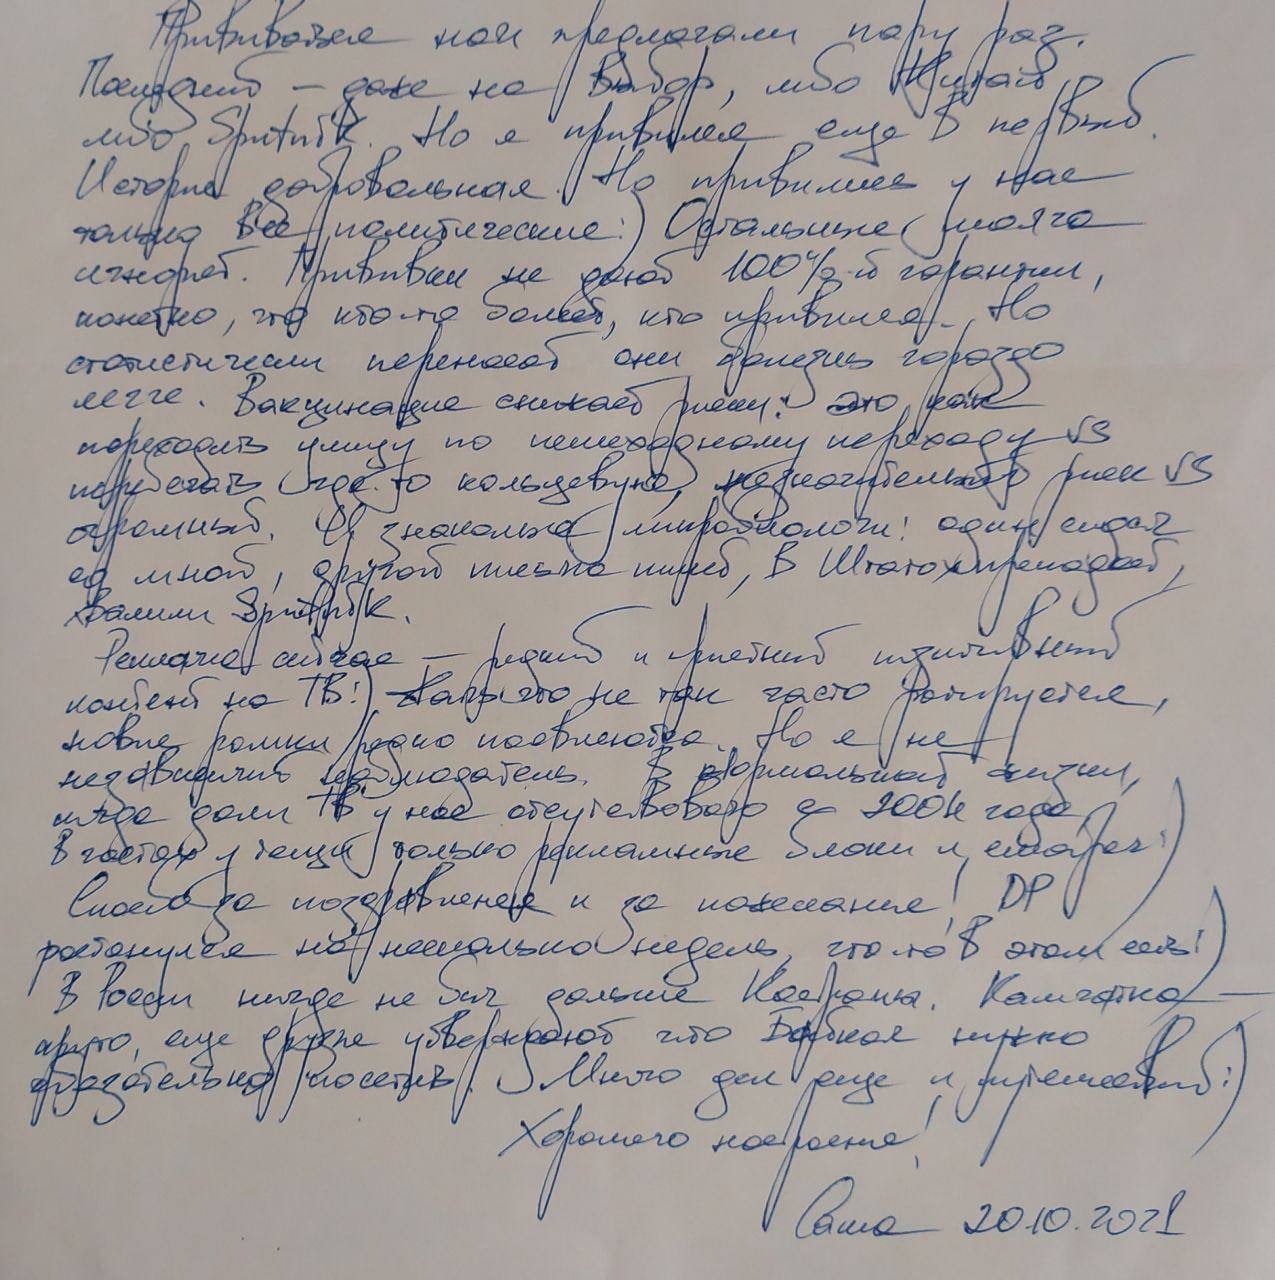 Прививаться нам предлагали пару раз.
Последний – даже на выбор, либо Китай,
либо Sputnik. Но я привился еще в первый.
История добровольная. Но привились у нас
только все политические:) Остальные
игнорят. Прививки не дают 100%-й гарантии,
конечно, что кто-то болеет, кто привился. Но
статистически переносят они болезнь гораздо
легче. Вакцинация снижает риски: это как
переходить улицу по пешеходному переходу VS
перебегать где-то кольцевую, незначительный риск VS
огромный. И знакомые микробиологи: один сидел
со мной, другой письма пишет, в Штатах преподает,
хвалили Sputnik.
Реклама сейчас – редкий и приятный позитивный
контент на ТВ:) что не так часто ротируется,
новые ролики редко появляются. Но я не
независимый наблюдатель. В нормальной жизни,
дома ТВ у нас отсутствовало с 2004 года
В гостях у тещи только рекламные блоки и смотрел:)
Спасибо за поздравления и за пожелания! DP
растянулся на несколько недель, что-то в этом есть:)
В России нигде не был дальше Костромы. Камчатка –
круто, еще друзья утверждают что Байкал нужно
обязательно посетить. Много дел еще и путешествий:)
Хорошего настроения!
Саша 20.10.2021